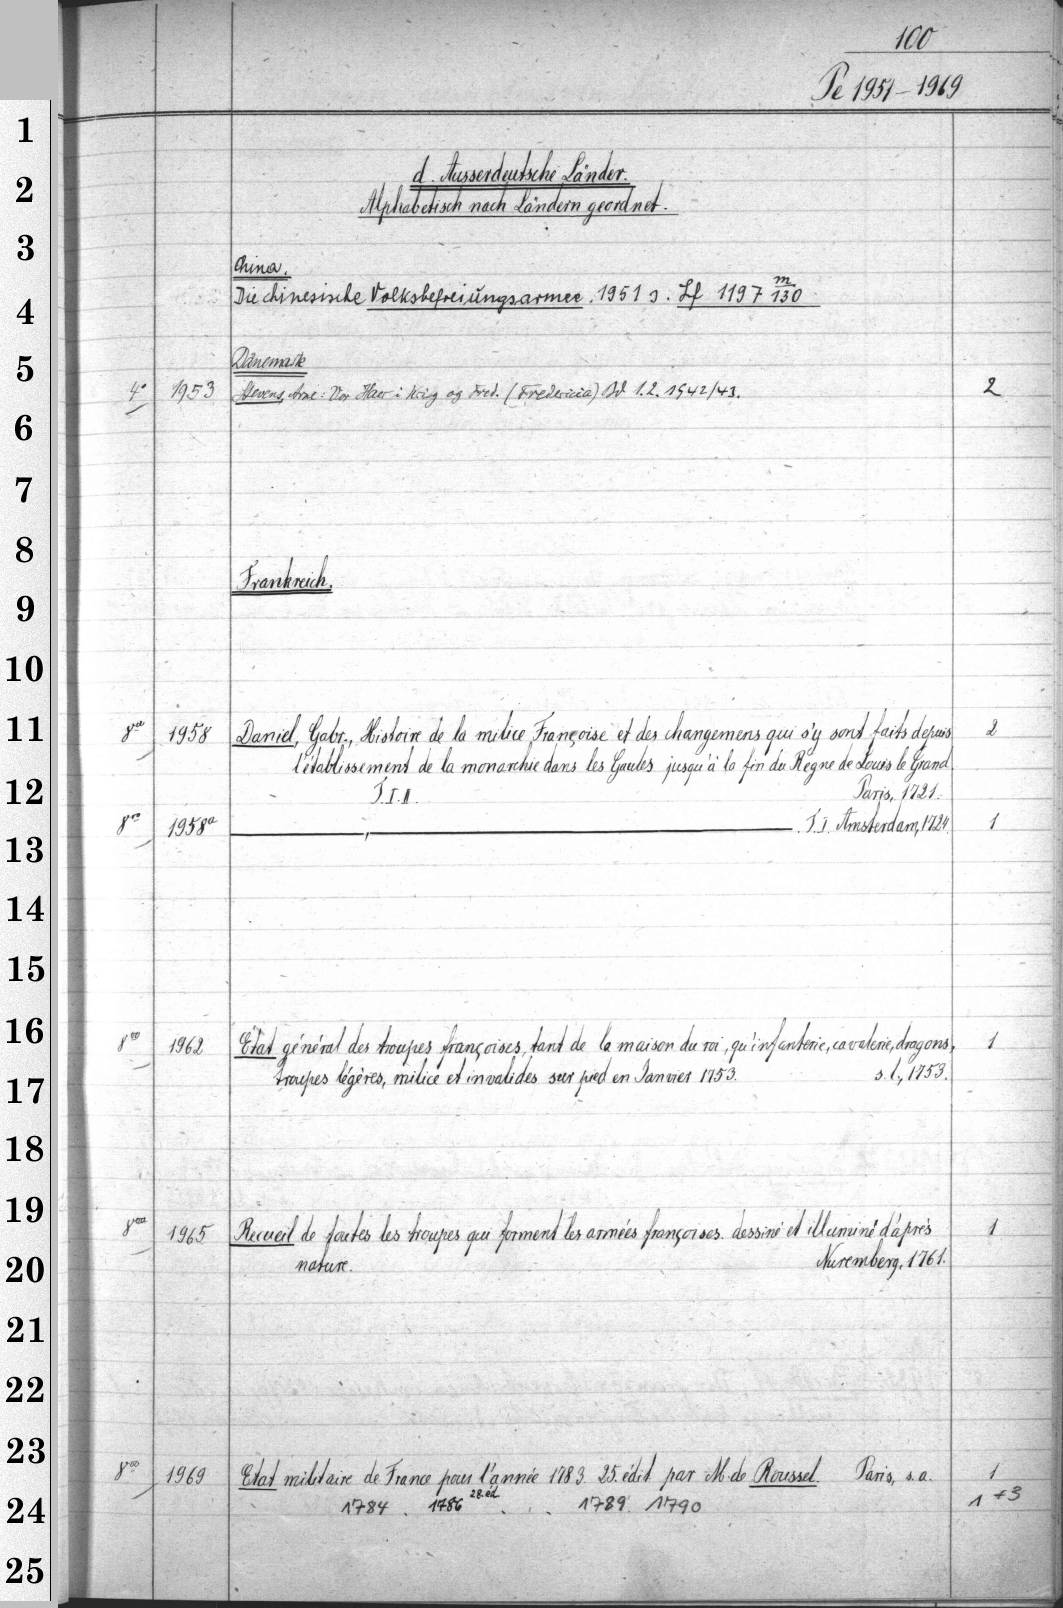 100
Pe 1951-1969
1
2
3
4
5
6
7
8
9
10
11
12
13
14
15
16
17
18
19
20
21
22
23
24
25
d. Ausserdeutsche Länder.
Alphabetisch nach Ländern geordnet.
China.
Die chinesische Volksbefreiungsarmee. 1951 s. Lf 1197 m/130
Dänemark
4° 1953 Stevens, Arne: Vor Haer i Krig og Fred. (Fredericia) Bd 1.2. 1942/43. 2
Frankreich.
8vo 1958 Daniel, Gabr., Histoire de la milice Françoise et des changemens qui s'y sont faits depuis 2
l'établissement de la monarchie dans les Gaules jusqu'à la fin du Règne de Louis le Grand.
T. I. II. Paris, 1721.
8vo 1958a ———,——— . T. I. Amsterdam, 1724. 1
8vo 1962 Etat général des troupes françoises, tant de la maison du roi, qu'infanterie, cavalerie, dragons, 1
troupes légères, milice et invalides sur pied en Janvier 1753. s. l., 1753.
8vo 1965 Recueil de toutes les troupes qui forment les armées françoises. dessiné et illuminé d'après 1
nature. Nuremberg, 1761.
8vo 1969 Etat militaire de France pour l'année 1783. 25. édit par M. de Roussel. Paris, s. a. 1
1784 . 1786 28.éd . . 1789. 1790 1 +3